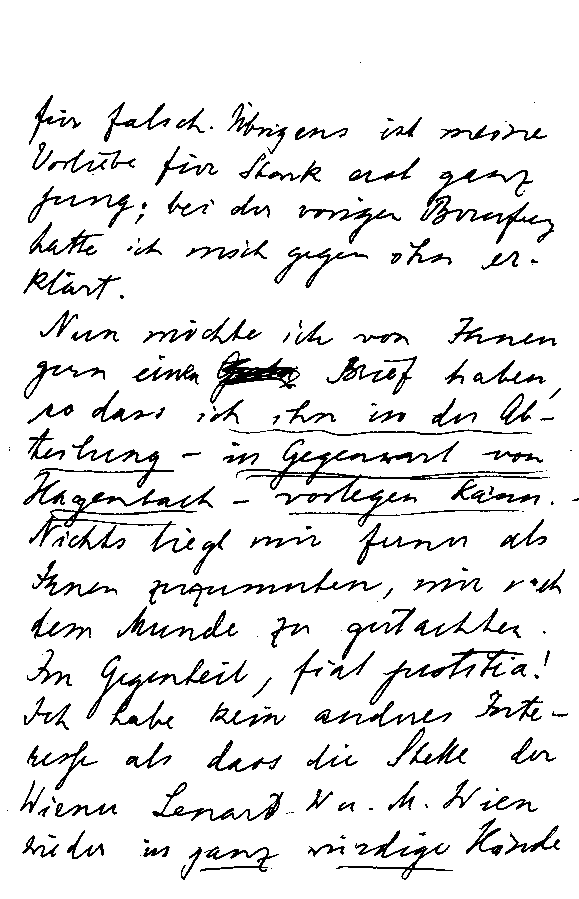 für falsch. Übrigens ist meine
Vorliebe für Stark erst ganz
jung; bei der vorigen Berufung
hatte ich mich gegen ihn er-
klärt.
Nun möchte ich von Ihnen
gern einen Brief haben,
so dass ich ihn in der Ab-
teilung – in Gegenwart von
Hagenbach – vorlegen kann. –
Nichts liegt mir ferner als
Ihnen zuzumuten, mir nach
dem Munde zu gutachten.
Im Gegenteil, fiat justitia!
Ich habe kein anderes Inte-
resse als dass die Stelle der
Wiener Lenard W. u. M. Wien
wieder in ganz würdige Hände